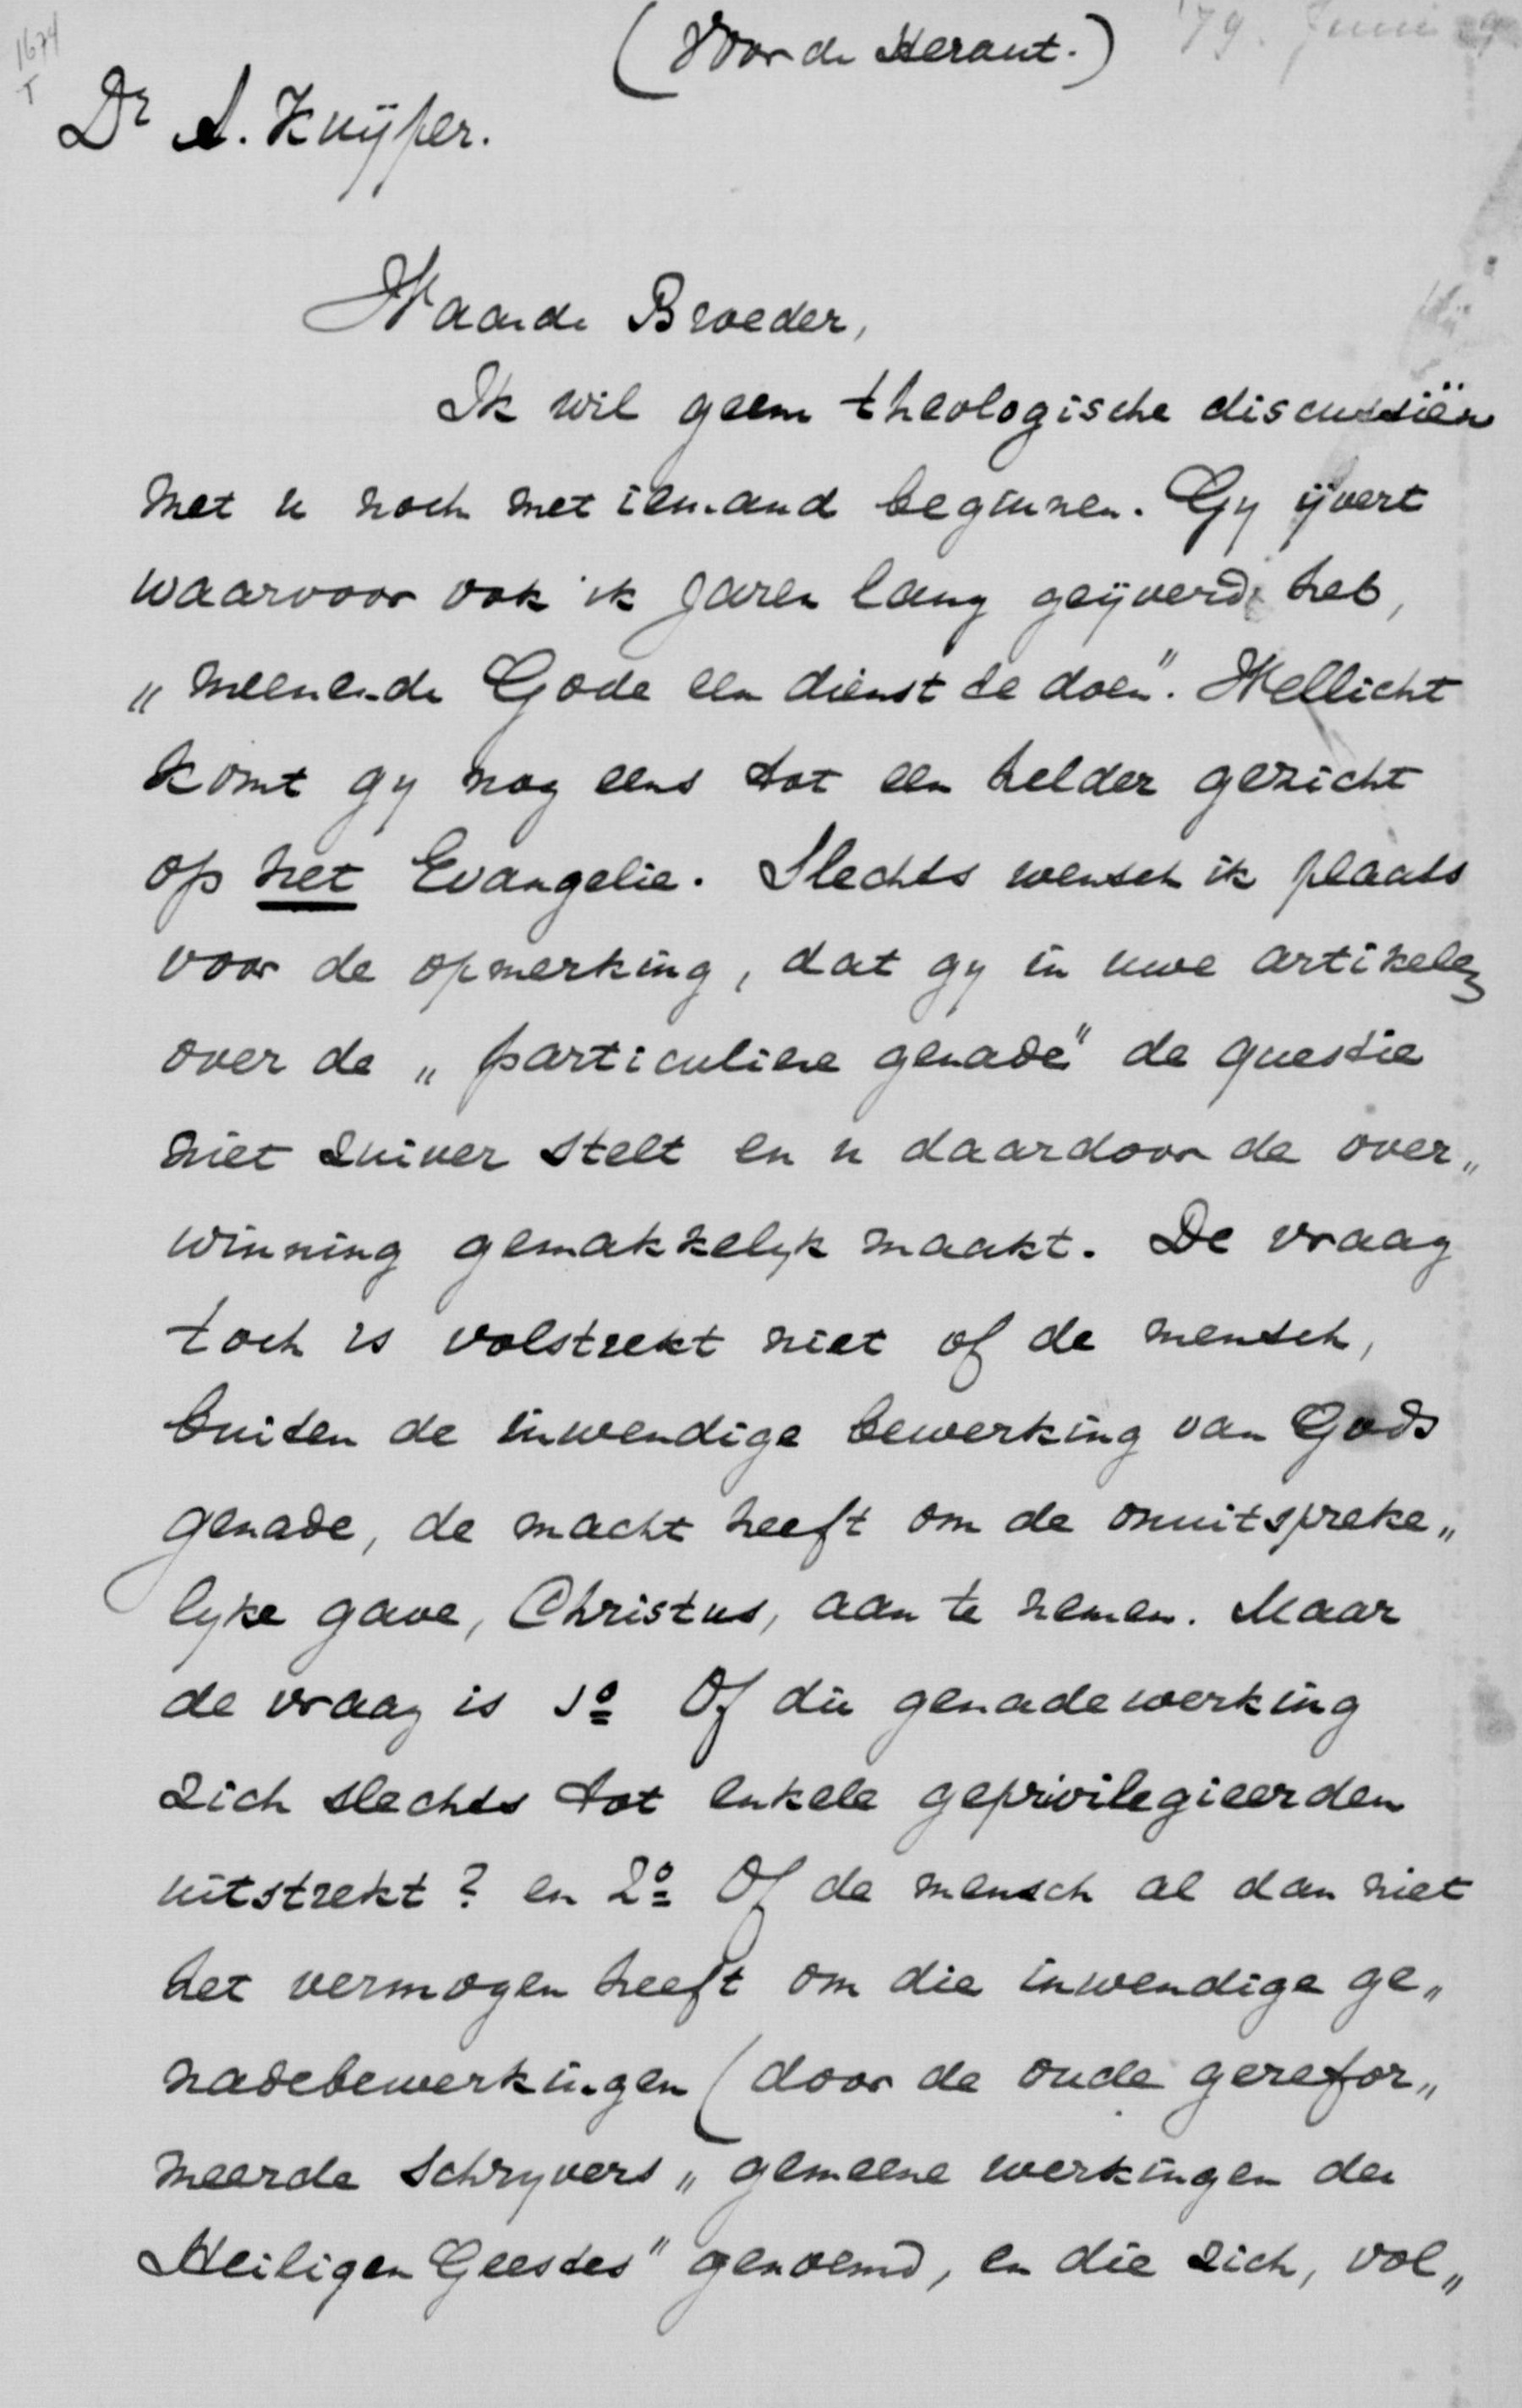 (Voor de Heraut.) '79. Juni
1674
Dr A. Kuijper.
Waarde Broeder,
Ik wil geene theologische discussiën
met u noch met iemand beginnen. Gy ijvert
waarvoor ook ik jaren lang geijverd heb,
„meenende Gode een dienst te doen". Wellicht
komt gy nog eens tot een helder gezicht
op het Evangelie. Slechts wensch ik plaats
voor de opmerking, dat gy in uwe artikelen
over de „particuliere genade" de questie
niet zuiver stelt en u daardoor de over„
winning gemakkelyk maakt. De vraag
toch is volstrekt niet of de mensch,
buiten de inwendige bewerking van Gods
genade, de macht heeft om de onuitspreke„
lyke gave, Christus, aan te nemen. Maar
de vraag is 1º Of die genadewerking
zich slechts tot enkele geprivilegieerden
uitstrekt? en 2º Of de mensch al dan niet
het vermogen heeft om die inwendige ge„
nadebewerkingen (door de oude gerefor„
meerde schryvers „gemeene werkingen des
Heiligen Geestes" genoemd, en die zich, vol„